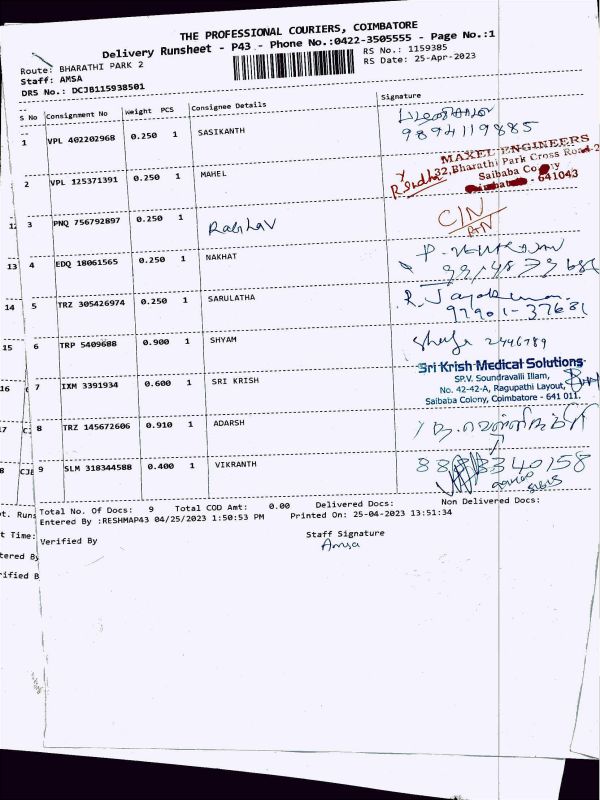 THE PROFESSIONAL COURIERS, COIMBATORE
Delivery Runsheet - P43 - Phone No.:0422-3505555 - Page No.:1
Route: BHARATHI PARK 2
RS No.: 1159385
Staff: AMSA
RS Date: 25-Apr-2023
DRS No.: DCJB115938501
S No Consignment No Weight PCS Consignee Details Signature
1 VPL 402202968 0.250 1 SASIKANTH
9894119885
2 VPL 125371391 0.250 1 MAHEL
MAXEL ENGINEERS
32, Bharathi Park Cross Road-2
Saibaba Colony
- 641043
12 3 PNQ 756792897 0.250 1 Raghav
13 4 EDQ 18061565 0.250 1 NAKHAT
14 5 TRZ 305426974 0.250 1 SARULATHA
97901-37681
15 6 TRP 5409688 0.900 1 SHYAM
2446789
16 7 IXM 3391934 0.600 1 SRI KRISH
Sri Krish Medical Solutions
SP.V. Soundravalli Illam,
No. 42-42-A, Ragupathi Layout,
Saibaba Colony, Coimbatore - 641 011.
8 TRZ 145672606 0.910 1 ADARSH
9 SLM 318344588 0.400 1 VIKRANTH
Total No. Of Docs: 9 Total COD Amt: 0.00 Delivered Docs: Non Delivered Docs:
Entered By :RESHMAP43 04/25/2023 1:50:53 PM Printed On: 25-04-2023 13:51:34
Verified By
Staff Signature
Amsa